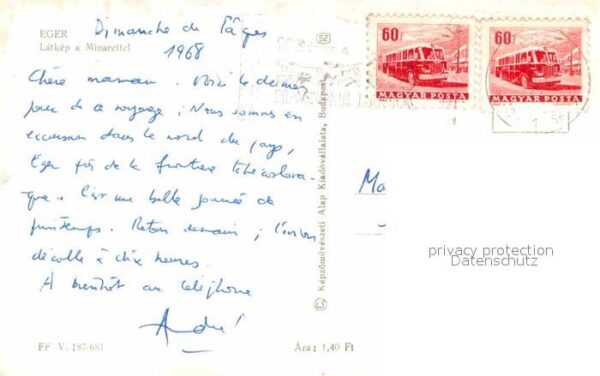 EGER
Látkép a Minarettel
Dimanche de Pâques
1968
Chère maman. Voici le dernier
jour de ce voyage ; Nous sommes en
excursion dans le nord du pays,
Eger près de la frontière tchécoslova-
que. C'est une belle journée de
printemps. Retour demain ; l'avion
décolle à dix heures.
A bientôt au téléphone
André
FF V. 187-681
SZ
Képzőművészeti Alap Kiadóvállalata, Budapest
Ára: 1,40 Ft
60f
MAGYAR POSTA
60f
MAGYAR POSTA
privacy protection
Datenschutz